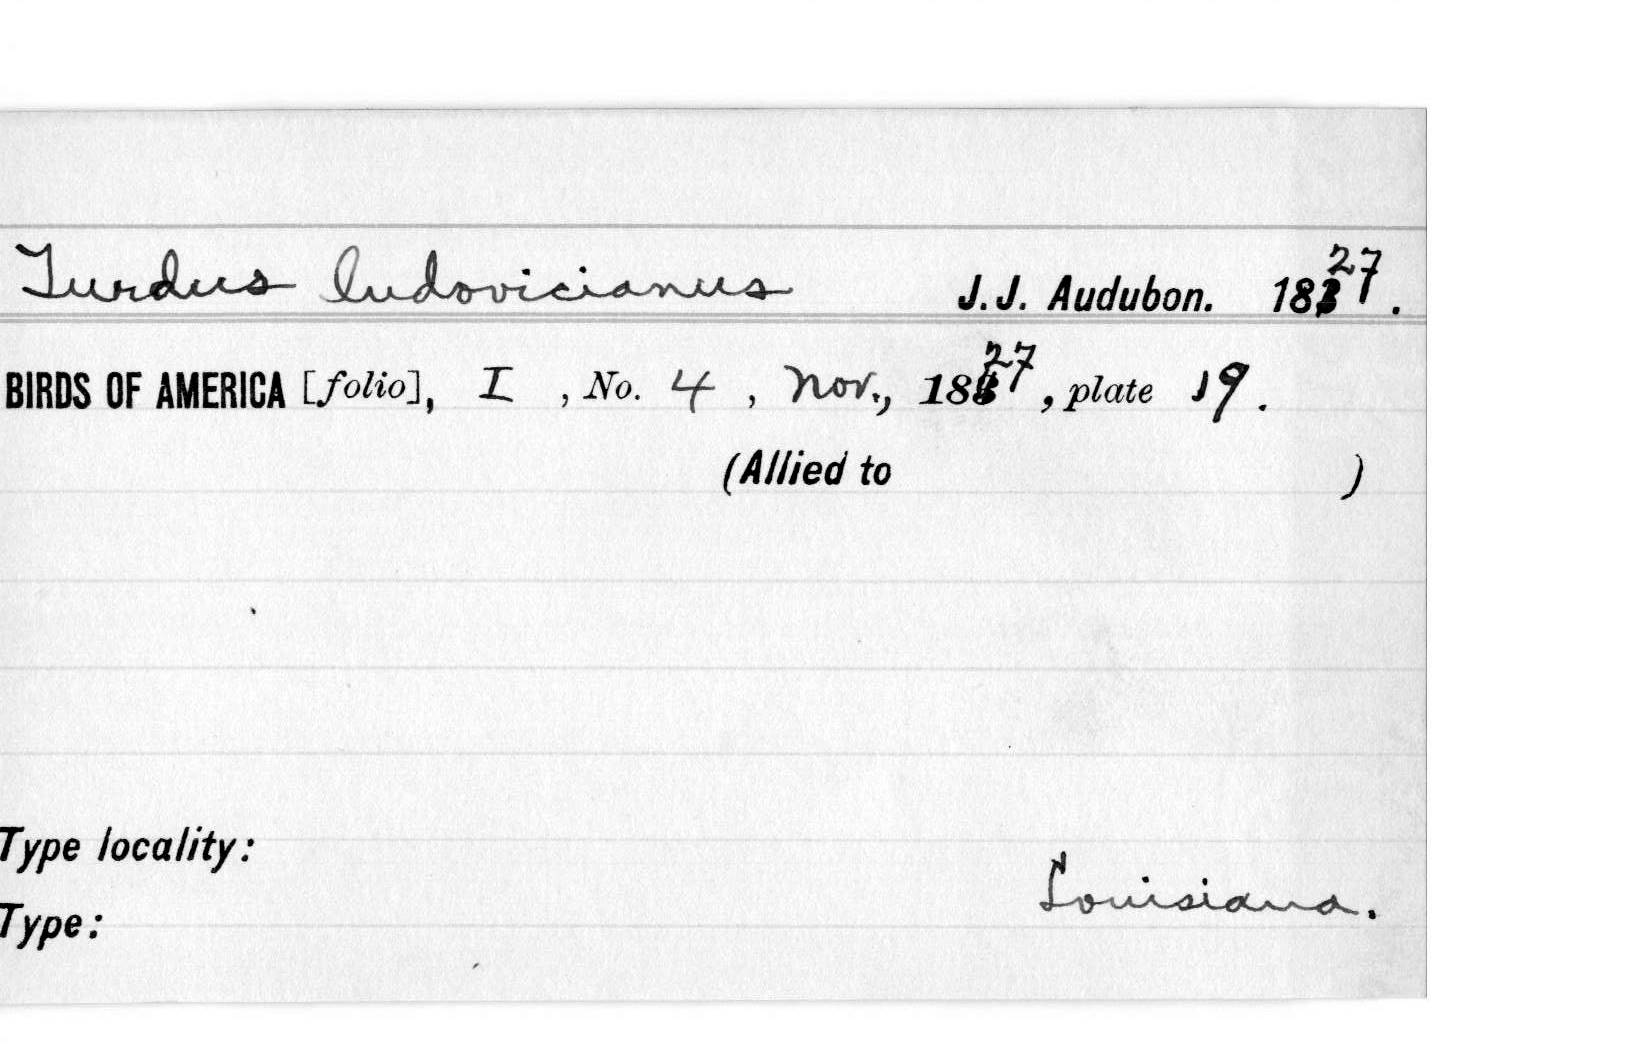 Turdus ludovicianus J.J. Audubon. 1827.
BIRDS OF AMERICA [folio], I, No. 4, Nov., 1827, plate 19.
(Allied to )
Type locality:
Louisiana.
Type: